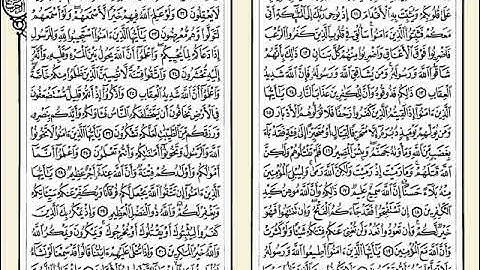 عَلَىٰ قُلُوبِكُمْ وَيُثَبِّتَ بِهِ ٱلْأَقْدَامَ ١١ إِذْ يُوحِى رَبُّكَ إِلَى ٱلْمَلَٰٓئِكَةِ أَنِّى
مَعَكُمْ فَثَبِّتُوا۟ ٱلَّذِينَ ءَامَنُوا۟ سَأُلْقِى فِى قُلُوبِ ٱلَّذِينَ كَفَرُوا۟ ٱلرُّعْبَ
فَٱضْرِبُوا۟ فَوْقَ ٱلْأَعْنَاقِ وَٱضْرِبُوا۟ مِنْهُمْ كُلَّ بَنَانٍ ١٢ ذَٰلِكَ بِأَنَّهُمْ
شَآقُّوا۟ ٱللَّهَ وَرَسُولَهُۥ وَمَن يُشَاقِقِ ٱللَّهَ وَرَسُولَهُۥ فَإِنَّ ٱللَّهَ شَدِيدُ
ٱلْعِقَابِ ١٣ ذَٰلِكُمْ فَذُوقُوهُ وَأَنَّ لِلْكَٰفِرِينَ عَذَابَ ٱلنَّارِ ١٤ يَٰٓأَيُّهَا
ٱلَّذِينَ ءَامَنُوٓا۟ إِذَا لَقِيتُمُ ٱلَّذِينَ كَفَرُوا۟ زَحْفًا فَلَا تُوَلُّوهُمُ ٱلْأَدْبَارَ ١٥
وَمَن يُوَلِّهِمْ يَوْمَئِذٍ دُبُرَهُۥٓ إِلَّا مُتَحَرِّفًا لِّقِتَالٍ أَوْ مُتَحَيِّزًا إِلَىٰ فِئَةٍ فَقَدْ بَآءَ
بِغَضَبٍ مِّنَ ٱللَّهِ وَمَأْوَىٰهُ جَهَنَّمُ وَبِئْسَ ٱلْمَصِيرُ ١٦ فَلَمْ تَقْتُلُوهُمْ وَلَٰكِنَّ
ٱللَّهَ قَتَلَهُمْ وَمَا رَمَيْتَ إِذْ رَمَيْتَ وَلَٰكِنَّ ٱللَّهَ رَمَىٰ وَلِيُبْلِىَ ٱلْمُؤْمِنِينَ
مِنْهُ بَلَآءً حَسَنًا إِنَّ ٱللَّهَ سَمِيعٌ عَلِيمٌ ١٧ ذَٰلِكُمْ وَأَنَّ ٱللَّهَ مُوهِنُ كَيْدِ
ٱلْكَٰفِرِينَ ١٨ إِن تَسْتَفْتِحُوا۟ فَقَدْ جَآءَكُمُ ٱلْفَتْحُ وَإِن تَنتَهُوا۟ فَهُوَ
خَيْرٌ لَّكُمْ وَإِن تَعُودُوا۟ نَعُدْ وَلَن تُغْنِىَ عَنكُمْ فِئَتُكُمْ شَيْـًٔا وَلَوْ كَثُرَتْ
وَأَنَّ ٱللَّهَ مَعَ ٱلْمُؤْمِنِينَ ١٩ يَٰٓأَيُّهَا ٱلَّذِينَ ءَامَنُوٓا۟ أَطِيعُوا۟ ٱللَّهَ وَرَسُولَهُۥ
لَا يَعْقِلُونَ ٢٢ وَلَوْ عَلِمَ ٱللَّهُ فِيهِمْ خَيْرًا لَّأَسْمَعَهُمْ وَلَوْ أَسْمَعَهُمْ
لَتَوَلَّوا۟ وَّهُم مُّعْرِضُونَ ٢٣ يَٰٓأَيُّهَا ٱلَّذِينَ ءَامَنُوا۟ ٱسْتَجِيبُوا۟ لِلَّهِ وَلِلرَّسُولِ
إِذَا دَعَاكُمْ لِمَا يُحْيِيكُمْ وَٱعْلَمُوٓا۟ أَنَّ ٱللَّهَ يَحُولُ بَيْنَ ٱلْمَرْءِ وَقَلْبِهِۦ وَأَنَّهُۥٓ
إِلَيْهِ تُحْشَرُونَ ٢٤ وَٱتَّقُوا۟ فِتْنَةً لَّا تُصِيبَنَّ ٱلَّذِينَ ظَلَمُوا۟ مِنكُمْ
خَآصَّةً وَٱعْلَمُوٓا۟ أَنَّ ٱللَّهَ شَدِيدُ ٱلْعِقَابِ ٢٥ وَٱذْكُرُوٓا۟ إِذْ أَنتُمْ قَلِيلٌ مُّسْتَضْعَفُونَ
فِى ٱلْأَرْضِ تَخَافُونَ أَن يَتَخَطَّفَكُمُ ٱلنَّاسُ فَـَٔاوَىٰكُمْ وَأَيَّدَكُم بِنَصْرِهِۦ
وَرَزَقَكُم مِّنَ ٱلطَّيِّبَٰتِ لَعَلَّكُمْ تَشْكُرُونَ ٢٦ يَٰٓأَيُّهَا ٱلَّذِينَ ءَامَنُوا۟ لَا تَخُونُوا۟
ٱللَّهَ وَٱلرَّسُولَ وَتَخُونُوٓا۟ أَمَٰنَٰتِكُمْ وَأَنتُمْ تَعْلَمُونَ ٢٧ وَٱعْلَمُوٓا۟ أَنَّمَآ
أَمْوَٰلُكُمْ وَأَوْلَٰدُكُمْ فِتْنَةٌ وَأَنَّ ٱللَّهَ عِندَهُۥٓ أَجْرٌ عَظِيمٌ ٢٨ يَٰٓأَيُّهَا
ٱلَّذِينَ ءَامَنُوٓا۟ إِن تَتَّقُوا۟ ٱللَّهَ يَجْعَل لَّكُمْ فُرْقَانًا وَيُكَفِّرْ عَنكُمْ سَيِّـَٔاتِكُمْ
وَيَغْفِرْ لَكُمْ وَٱللَّهُ ذُو ٱلْفَضْلِ ٱلْعَظِيمِ ٢٩ وَإِذْ يَمْكُرُ بِكَ ٱلَّذِينَ
كَفَرُوا۟ لِيُثْبِتُوكَ أَوْ يَقْتُلُوكَ أَوْ يُخْرِجُوكَ وَيَمْكُرُونَ وَيَمْكُرُ ٱللَّهُ
وَٱللَّهُ خَيْرُ ٱلْمَٰكِرِينَ ٣٠ وَإِذَا تُتْلَىٰ عَلَيْهِمْ ءَايَٰتُنَا قَالُوا۟ قَدْ سَمِعْنَا لَوْ نَشَآءُ